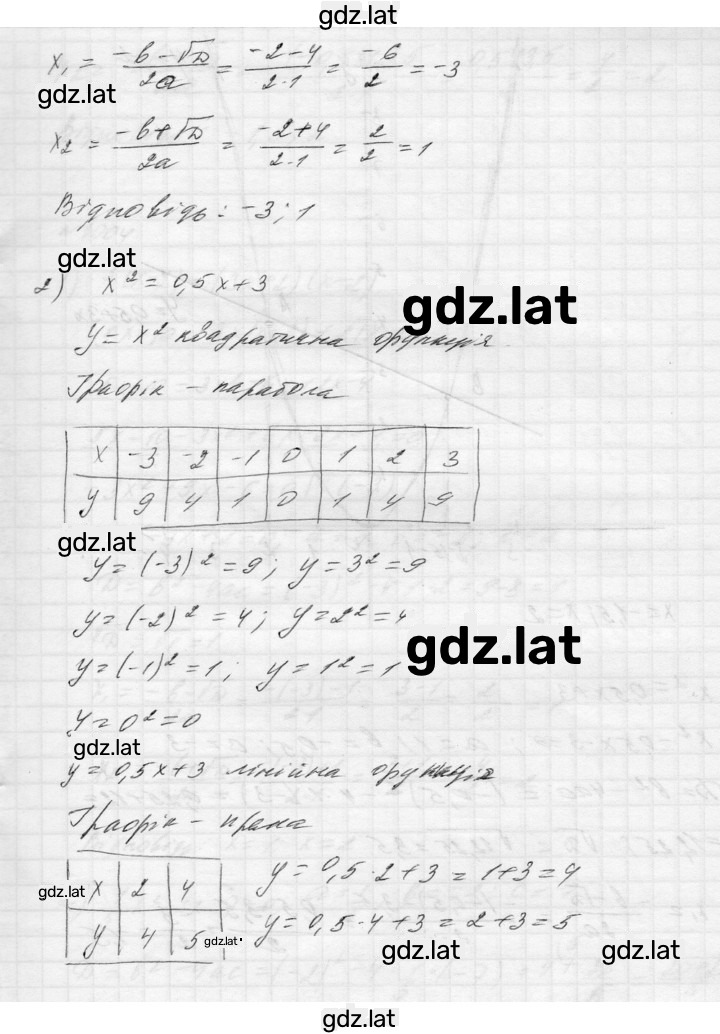 gdz.lat
x₁ = (-b-√D)/2a = (-2-4)/(2·1) = -6/2 = -3
gdz.lat
x₂ = (-b+√D)/2a = (-2+4)/(2·1) = 2/2 = 1
Відповідь: -3; 1
gdz.lat
2) x² = 0,5x+3
gdz.lat
y = x² квадратична функція.
Графік - парабола
x | -3 | -2 | -1 | 0 | 1 | 2 | 3
y | 9 | 4 | 1 | 0 | 1 | 4 | 9
gdz.lat
y = (-3)² = 9; y = 3² = 9
y = (-2)² = 4; y = 2² = 4
gdz.lat
y = (-1)² = 1; y = 1² = 1
y = 0² = 0
gdz.lat
y = 0,5x+3 лінійна функція
Графік - пряма
x | 2 | 4
y | 4 | 5
y = 0,5·2+3 = 1+3 = 4
y = 0,5·4+3 = 2+3 = 5
gdz.lat
gdz.lat
gdz.lat
gdz.lat
gdz.lat